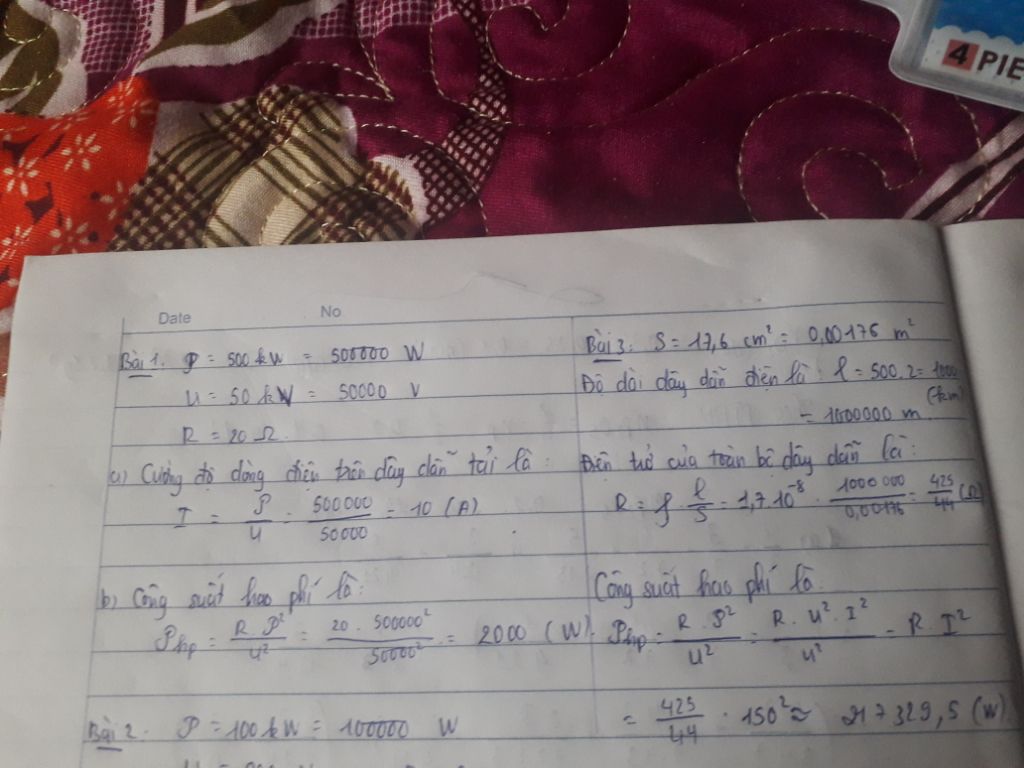 4 PIE
Date No
Bài 1. P = 500 kW = 500000 W
U = 50 kW = 50000 V
R = 20 Ω.
a) Cường độ dòng điện trên dây dẫn tải là:
I = P/U = 500000/50000 = 10 (A)
b) Công suất hao phí là:
Php = R.P²/U² = 20.500000²/50000² = 2000 (W).
Bài 2. P = 100 kW = 100000 W
Bài 3. S = 17,6 cm² = 0,00176 m²
Độ dài dây dẫn điện là: l = 500.2 = 1000
(km)
= 1000000 m
Điện trở của toàn bộ dây dẫn là:
R = ρ.l/S = 1,7.10⁻⁸ . 1000000/0,00176 = 425/44 (Ω)
Công suất hao phí là:
Php = R.P²/U² = R.U².I²/U² = R.I²
= 425/44 . 150² ≈ 217329,5 (W)